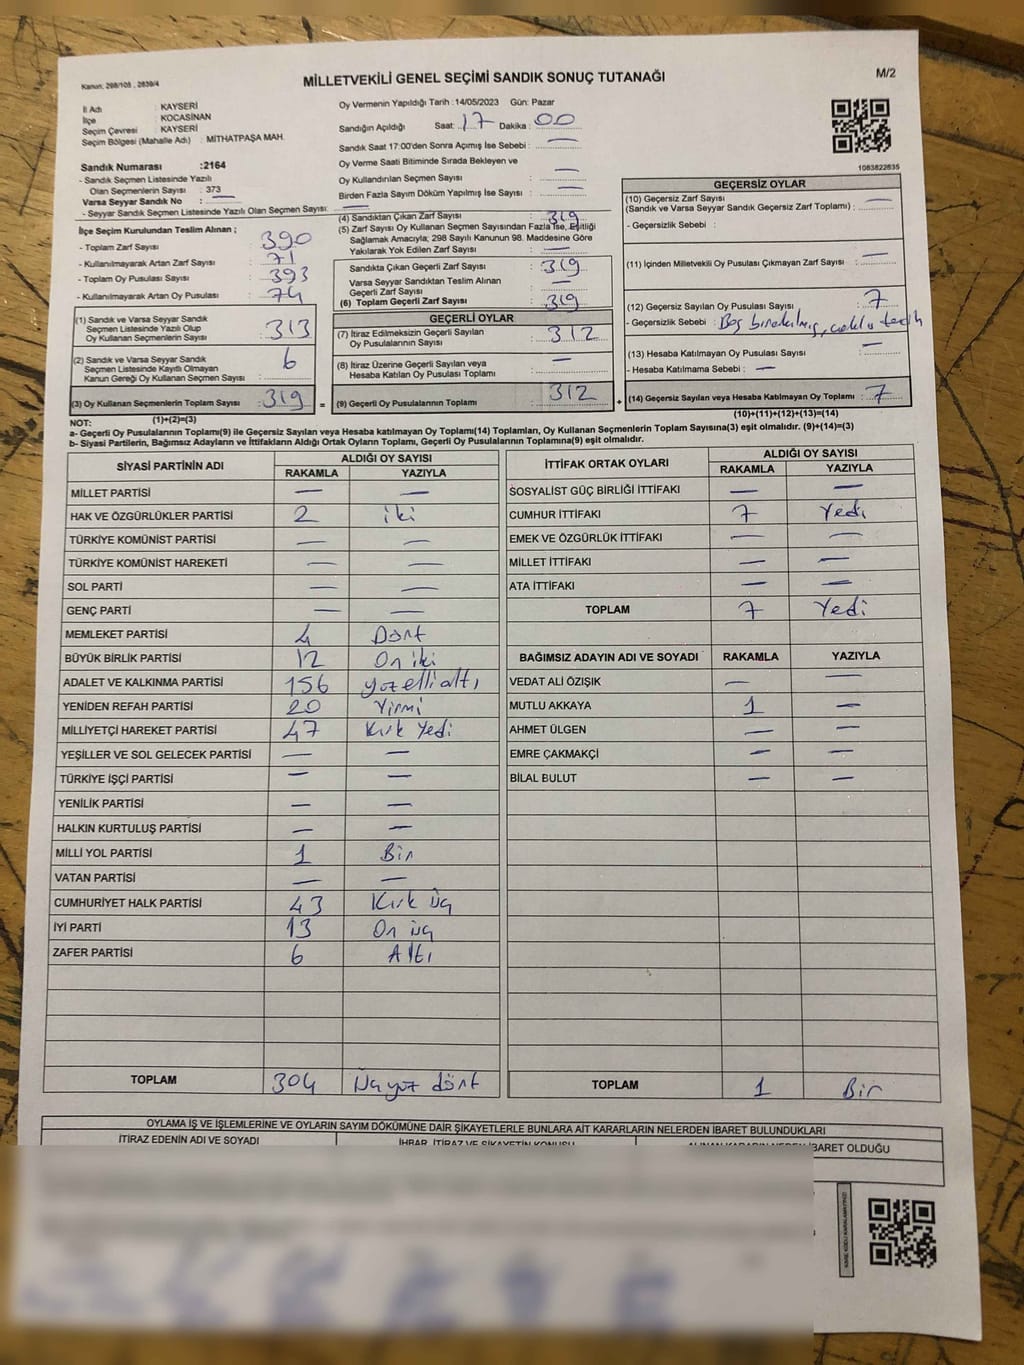 Kanun: 298/105 , 2839/4
MİLLETVEKİLİ GENEL SEÇİMİ SANDIK SONUÇ TUTANAĞI
M/2
İl Adı : KAYSERİ
İlçe : KOCASİNAN
Seçim Çevresi : KAYSERİ
Seçim Bölgesi (Mahalle Adı) : MİTHATPAŞA MAH.
Oy Vermenin Yapıldığı Tarih : 14/05/2023 Gün: Pazar
Sandığın Açıldığı Saat: 17 Dakika : 00
Sandık Saat 17:00'den Sonra Açımış İse Sebebi : —
Oy Verme Saati Bitiminde Sırada Bekleyen ve
Oy Kullandırılan Seçmen Sayısı : —
Birden Fazla Sayım Döküm Yapılmış İse Sayısı : —
1083822635
Sandık Numarası :2164
- Sandık Seçmen Listesinde Yazılı
Olan Seçmenlerin Sayısı : 373
Varsa Seyyar Sandık No : —
- Seyyar Sandık Seçmen Listesinde Yazılı Olan Seçmen Sayısı: —
İlçe Seçim Kurulundan Teslim Alınan ;
- Toplam Zarf Sayısı : 390
- Kullanılmayarak Artan Zarf Sayısı : 71
- Toplam Oy Pusulası Sayısı : 393
- Kullanılmayarak Artan Oy Pusulası : 74
(1) Sandık ve Varsa Seyyar Sandık
Seçmen Listesinde Yazılı Olup
Oy Kullanan Seçmenlerin Sayısı : 313
(2) Sandık ve Varsa Seyyar Sandık
Seçmen Listesinde Kayıtlı Olmayan
Kanun Gereği Oy Kullanan Seçmen Sayısı : 6
(3) Oy Kullanan Seçmenlerin Toplam Sayısı : 319 =
(1)+(2)=(3)
(4) Sandıktan Çıkan Zarf Sayısı : 319
(5) Zarf Sayısı Oy Kullanan Seçmen Sayısından Fazla İse, Eşitliği
Sağlamak Amacıyla; 298 Sayılı Kanunun 98. Maddesine Göre
Yakılarak Yok Edilen Zarf Sayısı : —
Sandıkta Çıkan Geçerli Zarf Sayısı : 319
Varsa Seyyar Sandıktan Teslim Alınan
Geçerli Zarf Sayısı : —
(6) Toplam Geçerli Zarf Sayısı : 319
GEÇERLİ OYLAR
(7) İtiraz Edilmeksizin Geçerli Sayılan
Oy Pusulalarının Sayısı : 312
(8) İtiraz Üzerine Geçerli Sayılan veya
Hesaba Katılan Oy Pusulaları Toplamı : —
(9) Geçerli Oy Pusulalarının Toplamı : 312 +
GEÇERSİZ OYLAR
(10) Geçersiz Zarf Sayısı : —
(Sandık ve Varsa Seyyar Sandık Geçersiz Zarf Toplamı) :
- Geçersizlik Sebebi :
(11) İçinden Milletvekili Oy Pusulası Çıkmayan Zarf Sayısı : —
(12) Geçersiz Sayılan Oy Pusulası Sayısı : 7
- Geçersizlik Sebebi : Boş bırakılmış,
(13) Hesaba Katılmayan Oy Pusulası Sayısı : —
- Hesaba Katılmama Sebebi : —
(14) Geçersiz Sayılan veya Hesaba Katılmayan Oy Toplamı : 7
(10)+(11)+(12)+(13)=(14)
NOT:
a- Geçerli Oy Pusulalarının Toplamı(9) ile Geçersiz Sayılan veya Hesaba katılmayan Oy Toplamı(14) Toplamları, Oy Kullanan Seçmenlerin Toplam Sayısına(3) eşit olmalıdır. (9)+(14)=(3)
b- Siyasi Partilerin, Bağımsız Adayların ve İttifakların Aldığı Ortak Oyların Toplamı, Geçerli Oy Pusulalarının Toplamına(9) eşit olmalıdır.
SİYASİ PARTİNİN ADI ALDIĞI OY SAYISI
RAKAMLA YAZIYLA
MİLLET PARTİSİ — —
HAK VE ÖZGÜRLÜKLER PARTİSİ 2 iki
TÜRKİYE KOMÜNİST PARTİSİ — —
TÜRKİYE KOMÜNİST HAREKETİ — —
SOL PARTİ — —
GENÇ PARTİ — —
MEMLEKET PARTİSİ 4 Dört
BÜYÜK BİRLİK PARTİSİ 12 On iki
ADALET VE KALKINMA PARTİSİ 156 yüzelli altı
YENİDEN REFAH PARTİSİ 20 Yirmi
MİLLİYETÇİ HAREKET PARTİSİ 47 Kırk Yedi
YEŞİLLER VE SOL GELECEK PARTİSİ — —
TÜRKİYE İŞÇİ PARTİSİ — —
YENİLİK PARTİSİ — —
HALKIN KURTULUŞ PARTİSİ — —
MİLLİ YOL PARTİSİ 1 Bir
VATAN PARTİSİ — —
CUMHURİYET HALK PARTİSİ 43 Kırk üç
İYİ PARTİ 13 On üç
ZAFER PARTİSİ 6 Altı
TOPLAM 304 Üçyüz dört
İTTİFAK ORTAK OYLARI ALDIĞI OY SAYISI
RAKAMLA YAZIYLA
SOSYALİST GÜÇ BİRLİĞİ İTTİFAKI — —
CUMHUR İTTİFAKI 7 Yedi
EMEK VE ÖZGÜRLÜK İTTİFAKI — —
MİLLET İTTİFAKI — —
ATA İTTİFAKI — —
TOPLAM 7 Yedi
BAĞIMSIZ ADAYIN ADI VE SOYADI RAKAMLA YAZIYLA
VEDAT ALİ ÖZIŞIK — —
MUTLU AKKAYA 1 —
AHMET ÜLGEN — —
EMRE ÇAKMAKÇİ — —
BİLAL BULUT — —
TOPLAM 1 Bir
OYLAMA İŞ VE İŞLEMLERİNE VE OYLARIN SAYIM DÖKÜMÜNE DAİR ŞİKAYETLERLE BUNLARA AİT KARARLARIN NELERDEN İBARET BULUNDUKLARI
İTİRAZ EDENİN ADI VE SOYADI İHBAR, İTİRAZ VE ŞİKAYETİN KONUSU ALINAN KARARIN NEDEN İBARET OLDUĞU